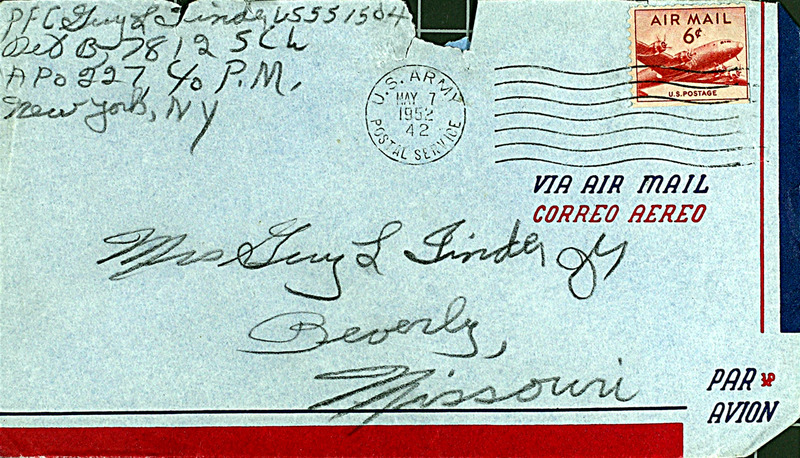 PFC Guy L Tinder US551504
Det B, 7812 SCU
APO 227 c/o P.M.
New York, NY
U.S. ARMY
MAY 7
1952
42
POSTAL SERVICE
AIR MAIL
6¢
U.S. POSTAGE
VIA AIR MAIL
CORREO AEREO
Mrs Guy L Tinder Jr
Beverly,
Missouri
PAR
AVION